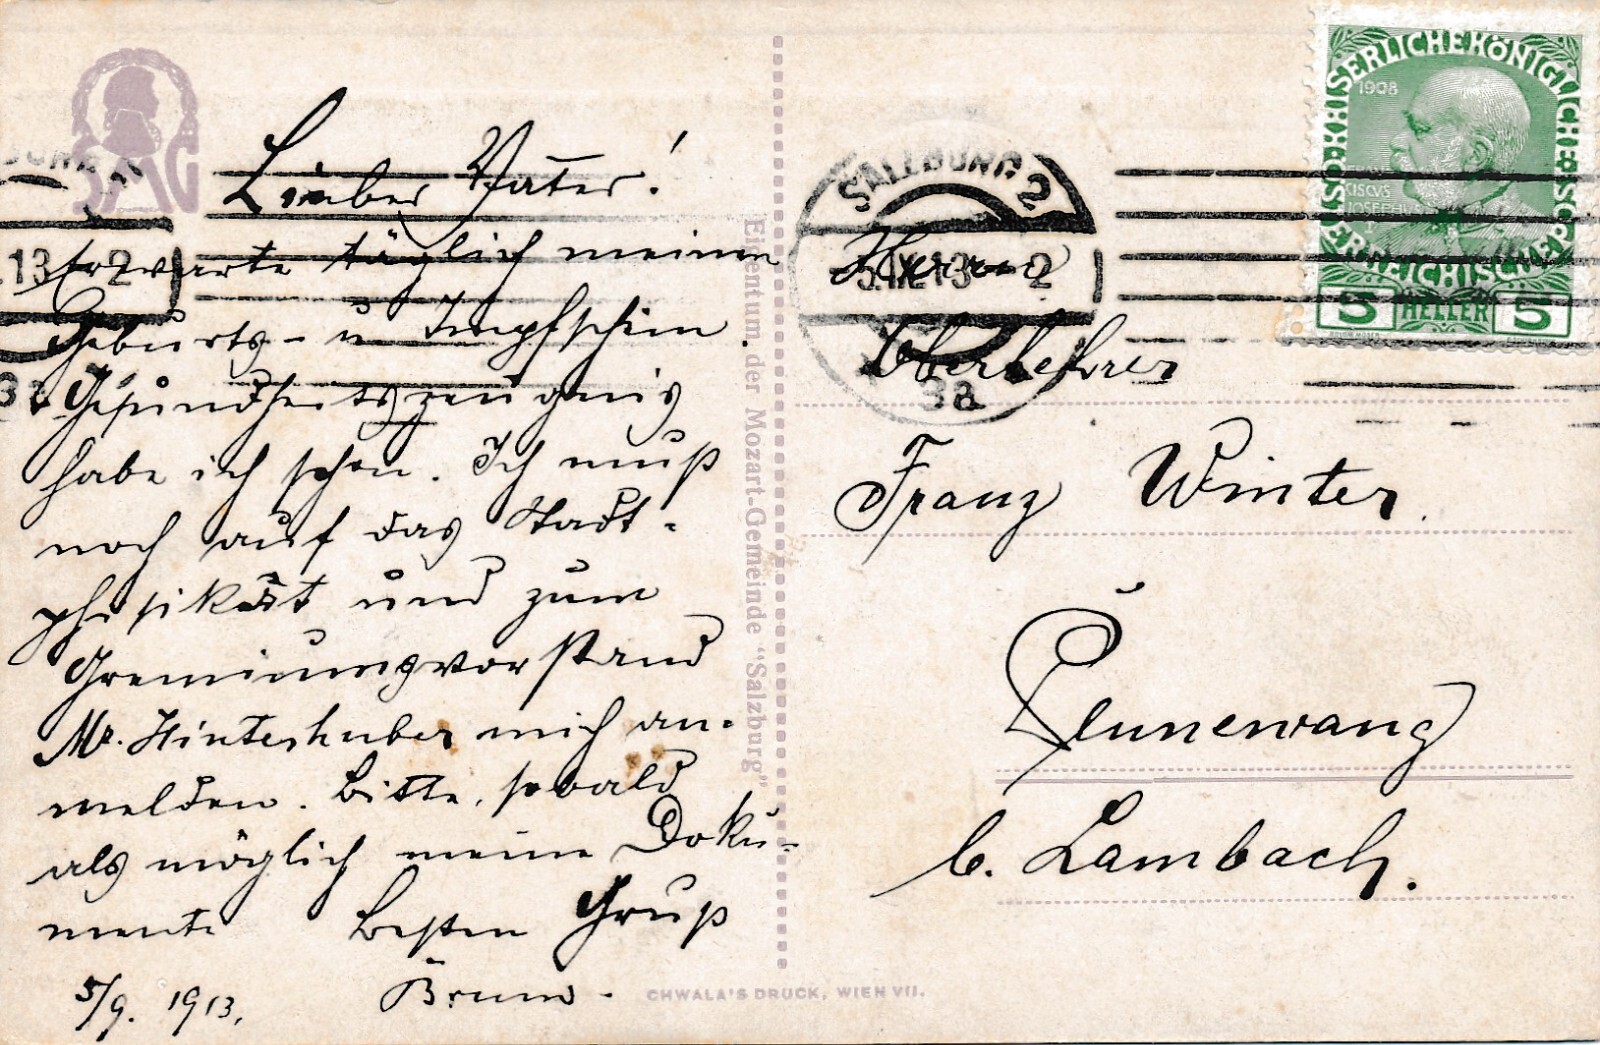 Lieber Vater!
Erwarte täglich meinen
Geburts- u Impfschein.
Gesundheitszeugnis
habe ich schon. Ich muß
noch auf das Stadt-
phisikat und zum
Gremiumsvorstand
Mr. Hinterhuber mich an-
melden. Bitte, sobald
als möglich meine Doku-
mente Besten Gruß
5/9. 1913. Bruno.
Eigentum der Mozart-Gemeinde "Salzburg"
CHWALA'S DRUCK, WIEN VII.
KAISERLICHE KÖNIGLICHE ÖSTERREICHISCHE POST
1908
FRAN
CISCVS
JOSEPHVS
I
5 HELLER 5
SALZBURG 2
5.IX.13-2
3a
13 2
3a
Herrn
Oberlehrer
Franz Winter
Neukirchen
b. Lambach.